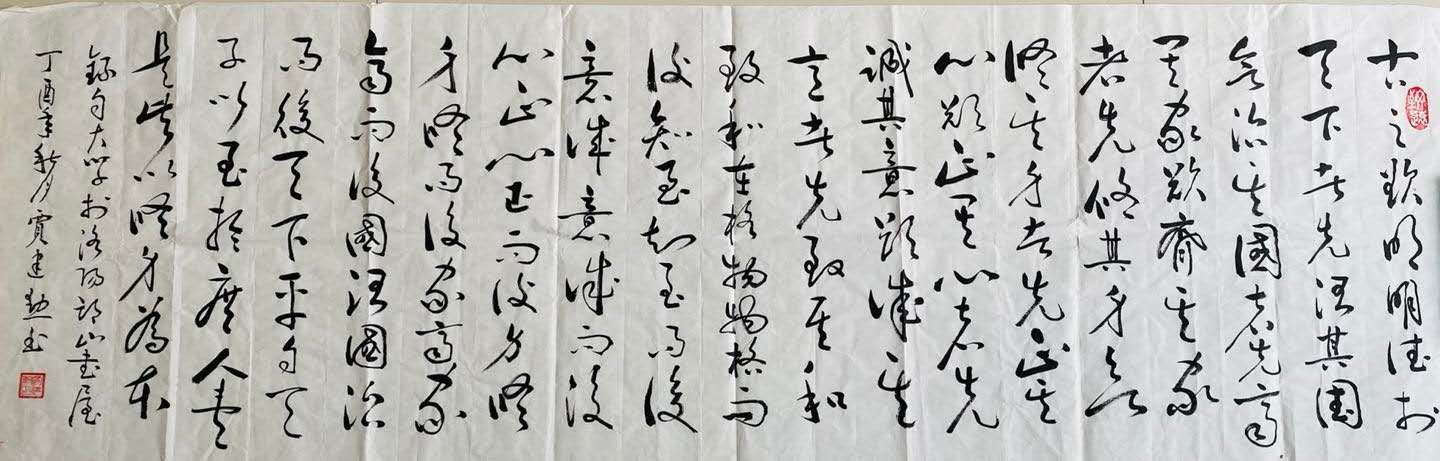 古之欲明明德於
天下者先治其國
欲治其國者先齊
其家欲齊其家
者先修其身欲
修其身者先正其
心欲正其心者先
誠其意欲誠其
意者先致其知
致知在格物物格而
後知至知至而後
意誠意誠而後
心正心正而後身修
身修而後家齊家
齊而後國治國治
而後天下平自天
子以至於庶人壹
是皆以修身為本
錄自大學於洛陽邙山書屋
丁酉年秋月建勳書